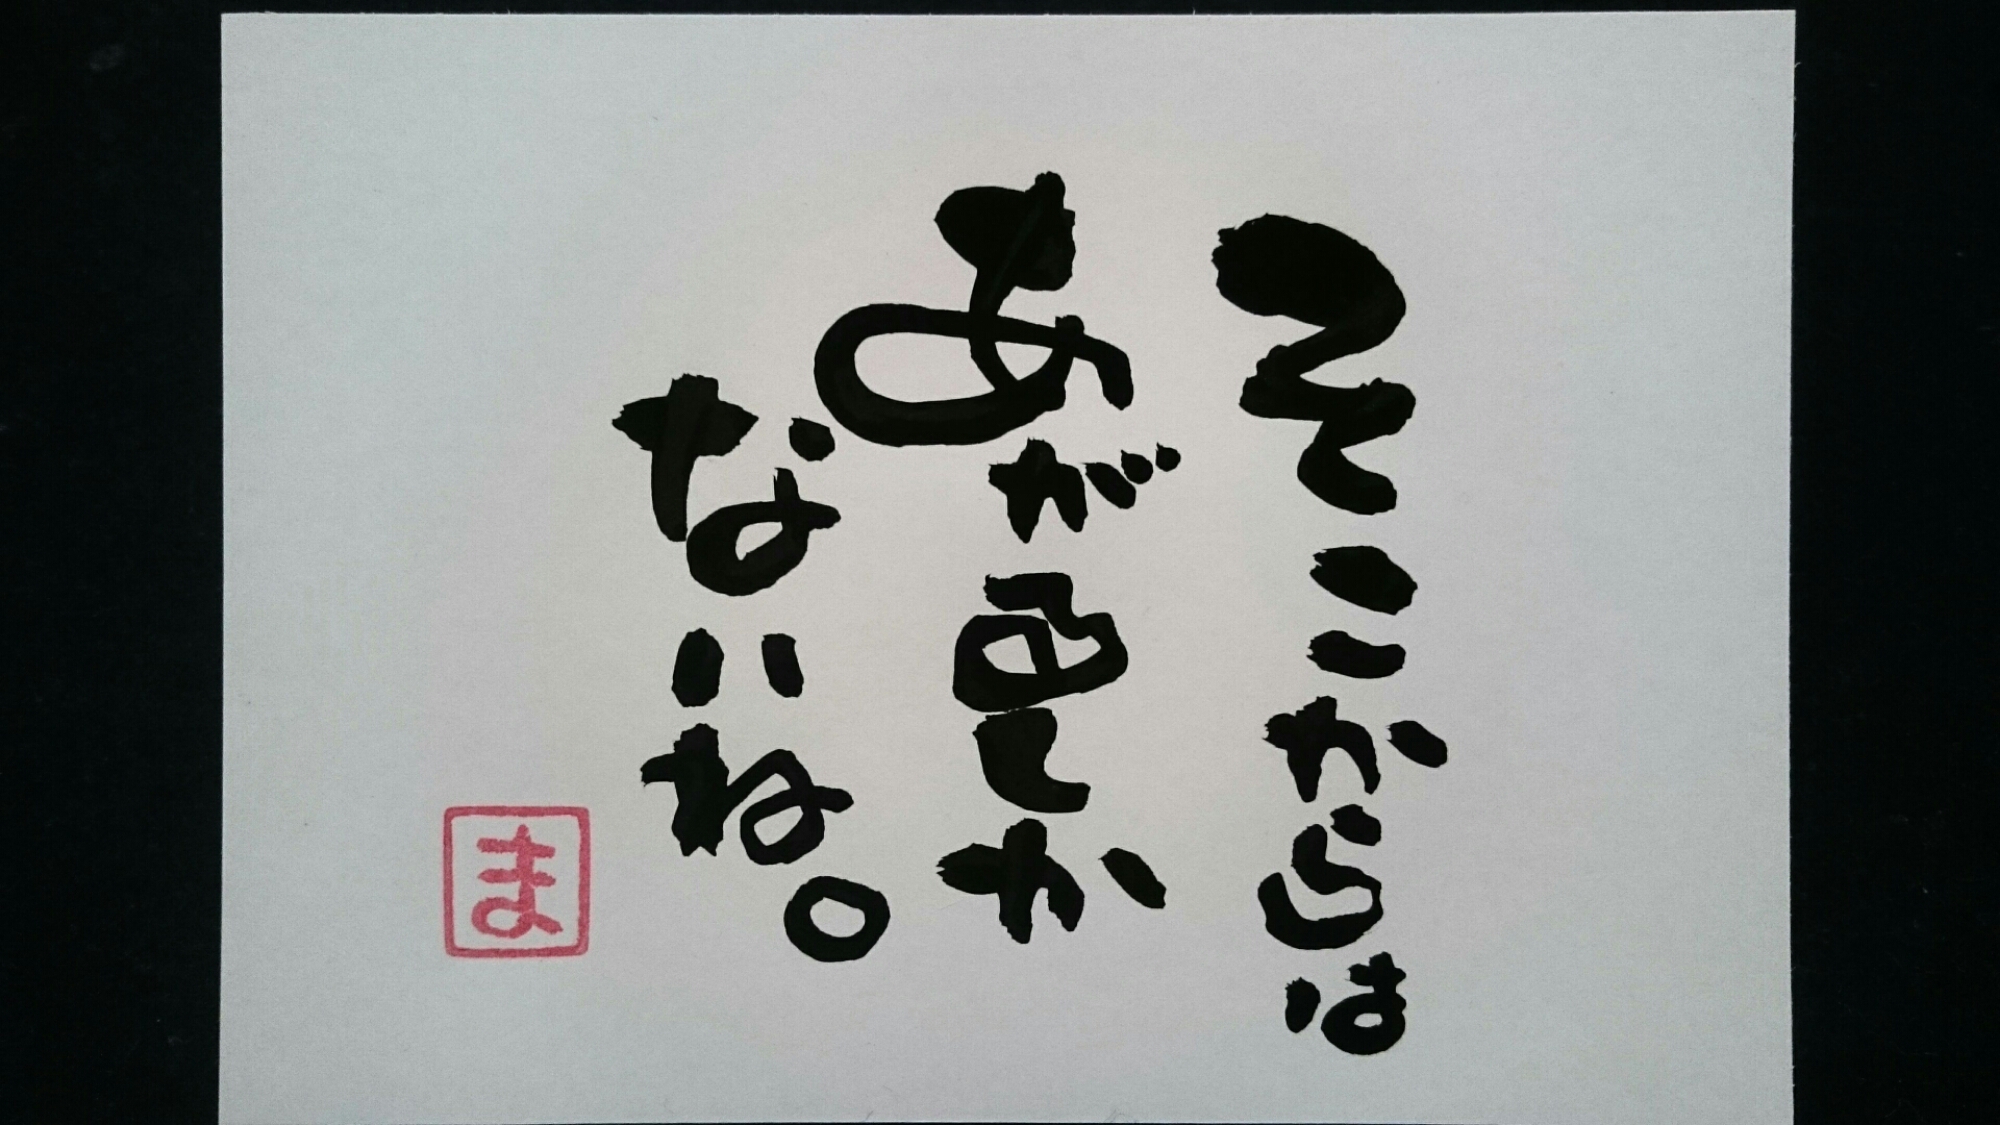 そこからは
あがるしか
ないね。
ま